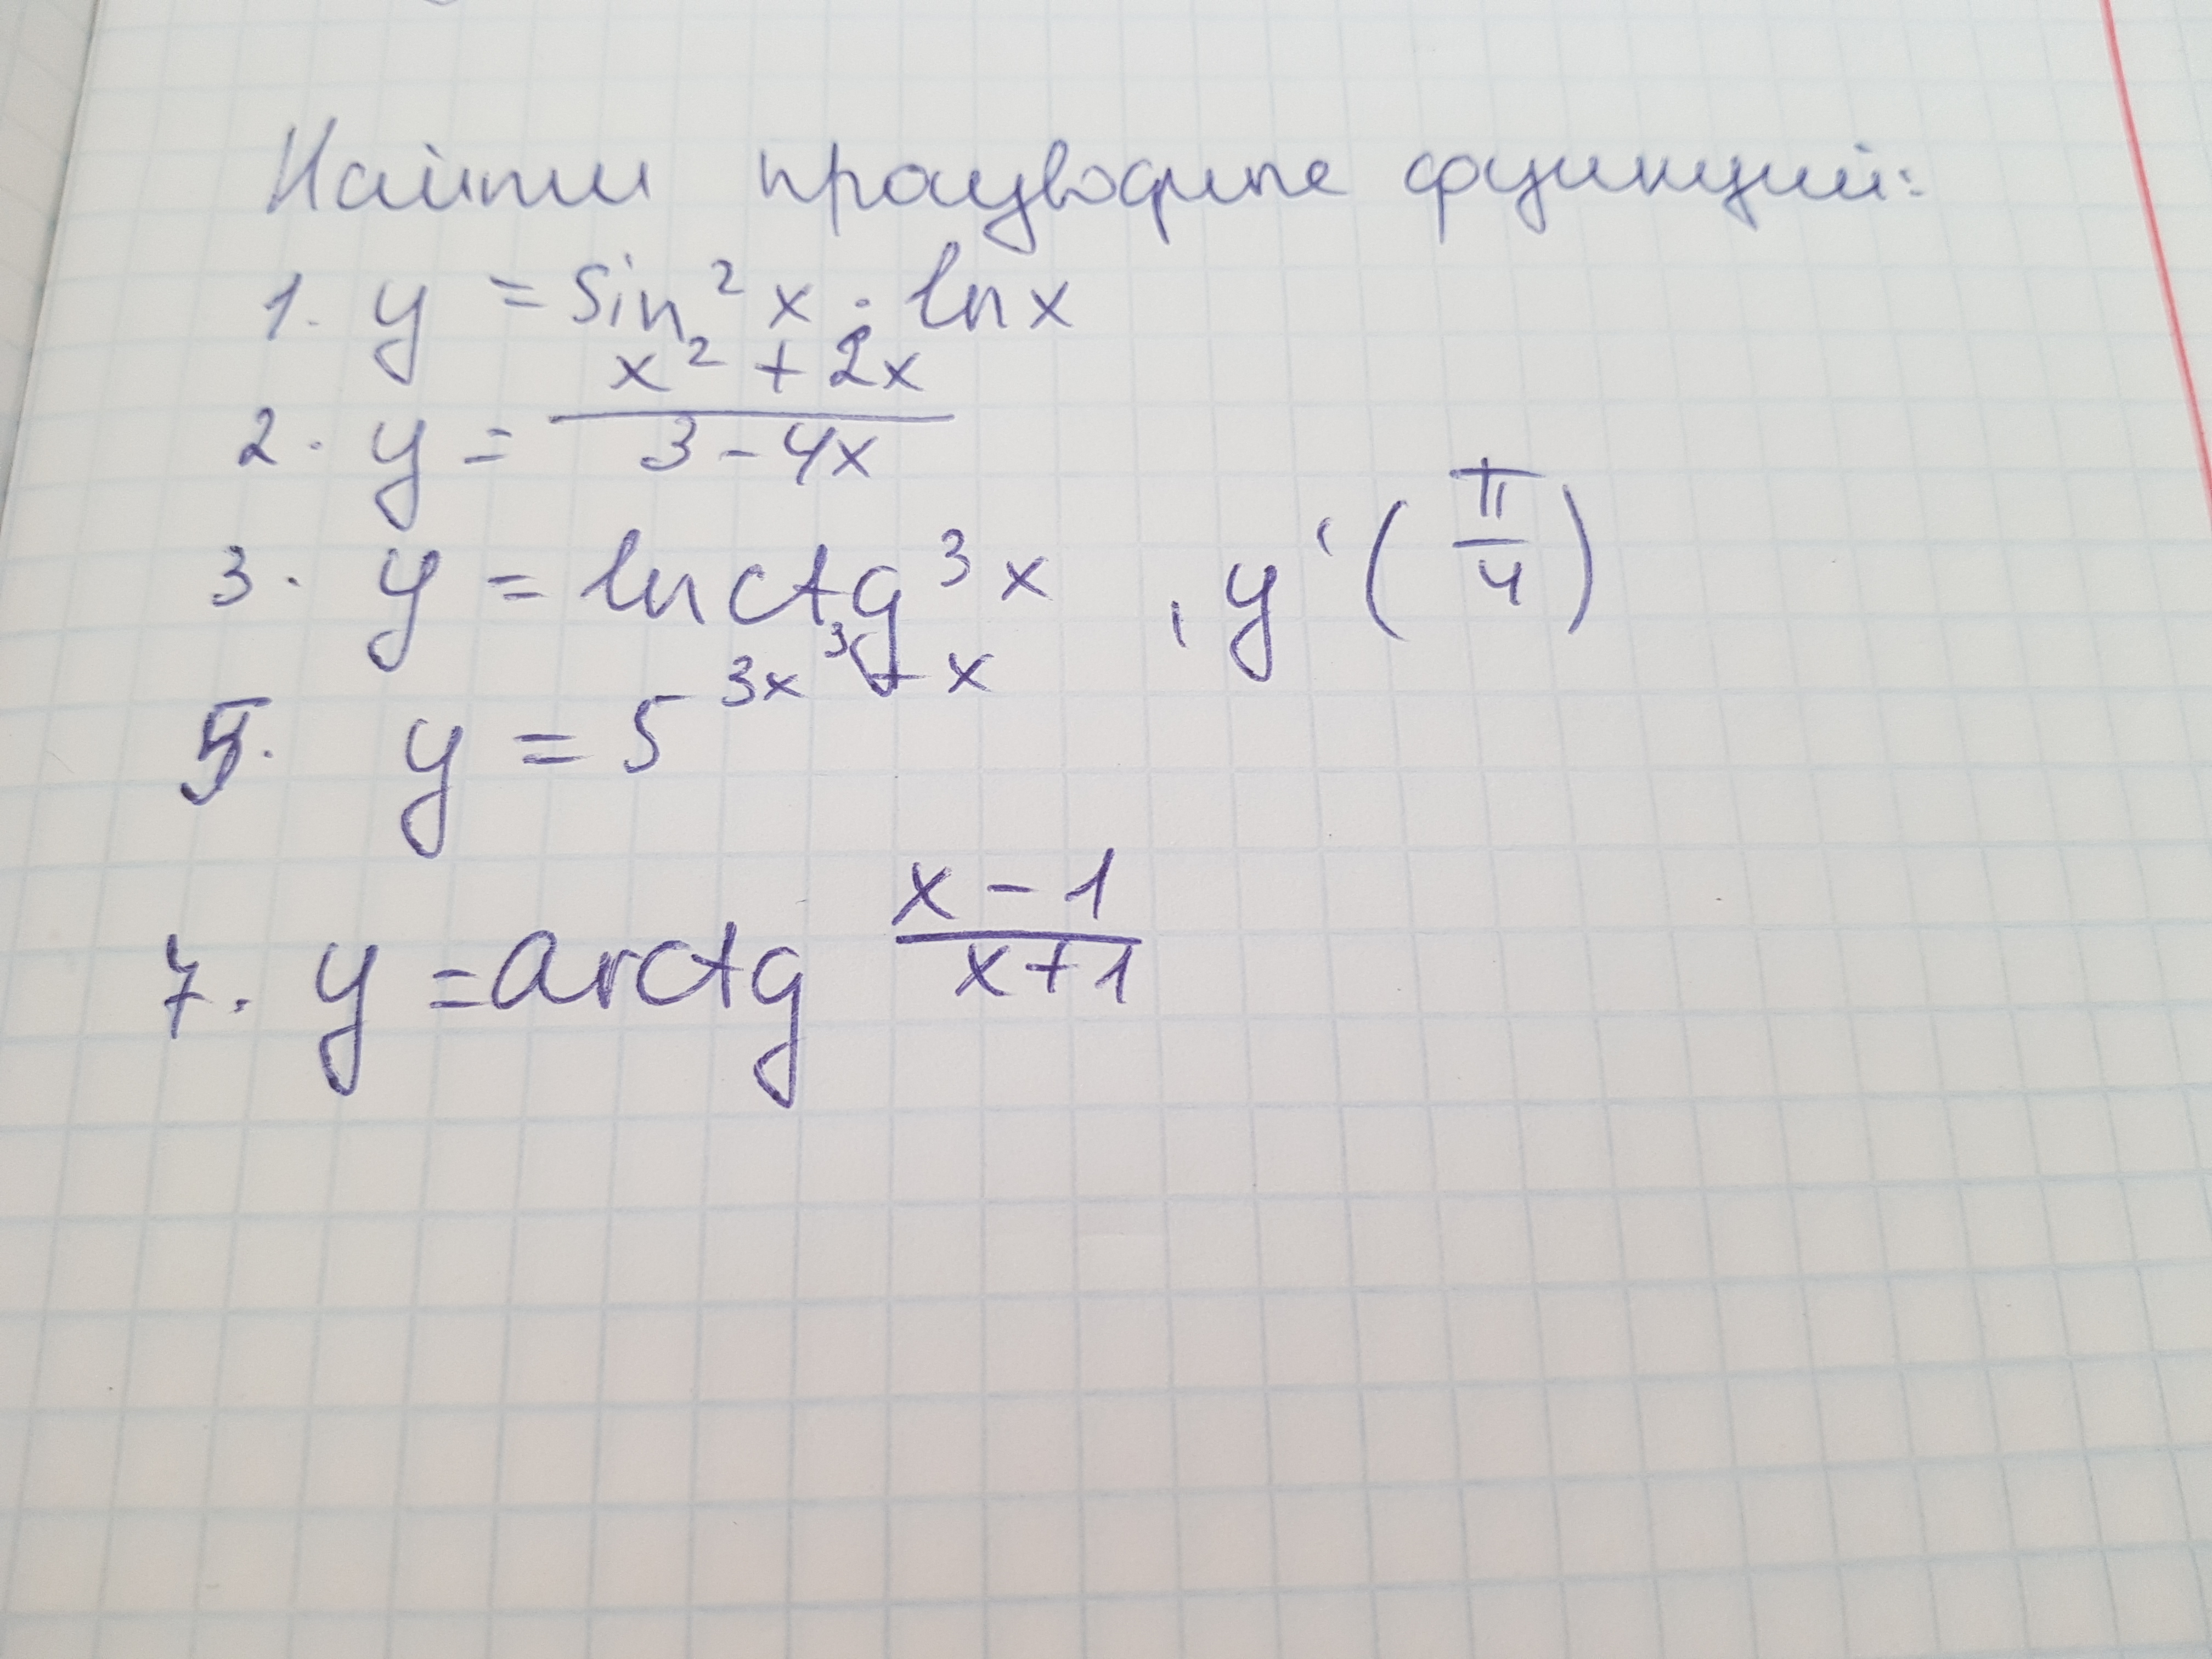 Найти производные функций:
1. y = sin² x · ln x
2. y = (x² + 2x)/(3 - 4x)
3. y = ln ctg³ x , y' (π/4)
5. y = 5^(3x³ - x)
7. y = arctg (x - 1)/(x + 1)